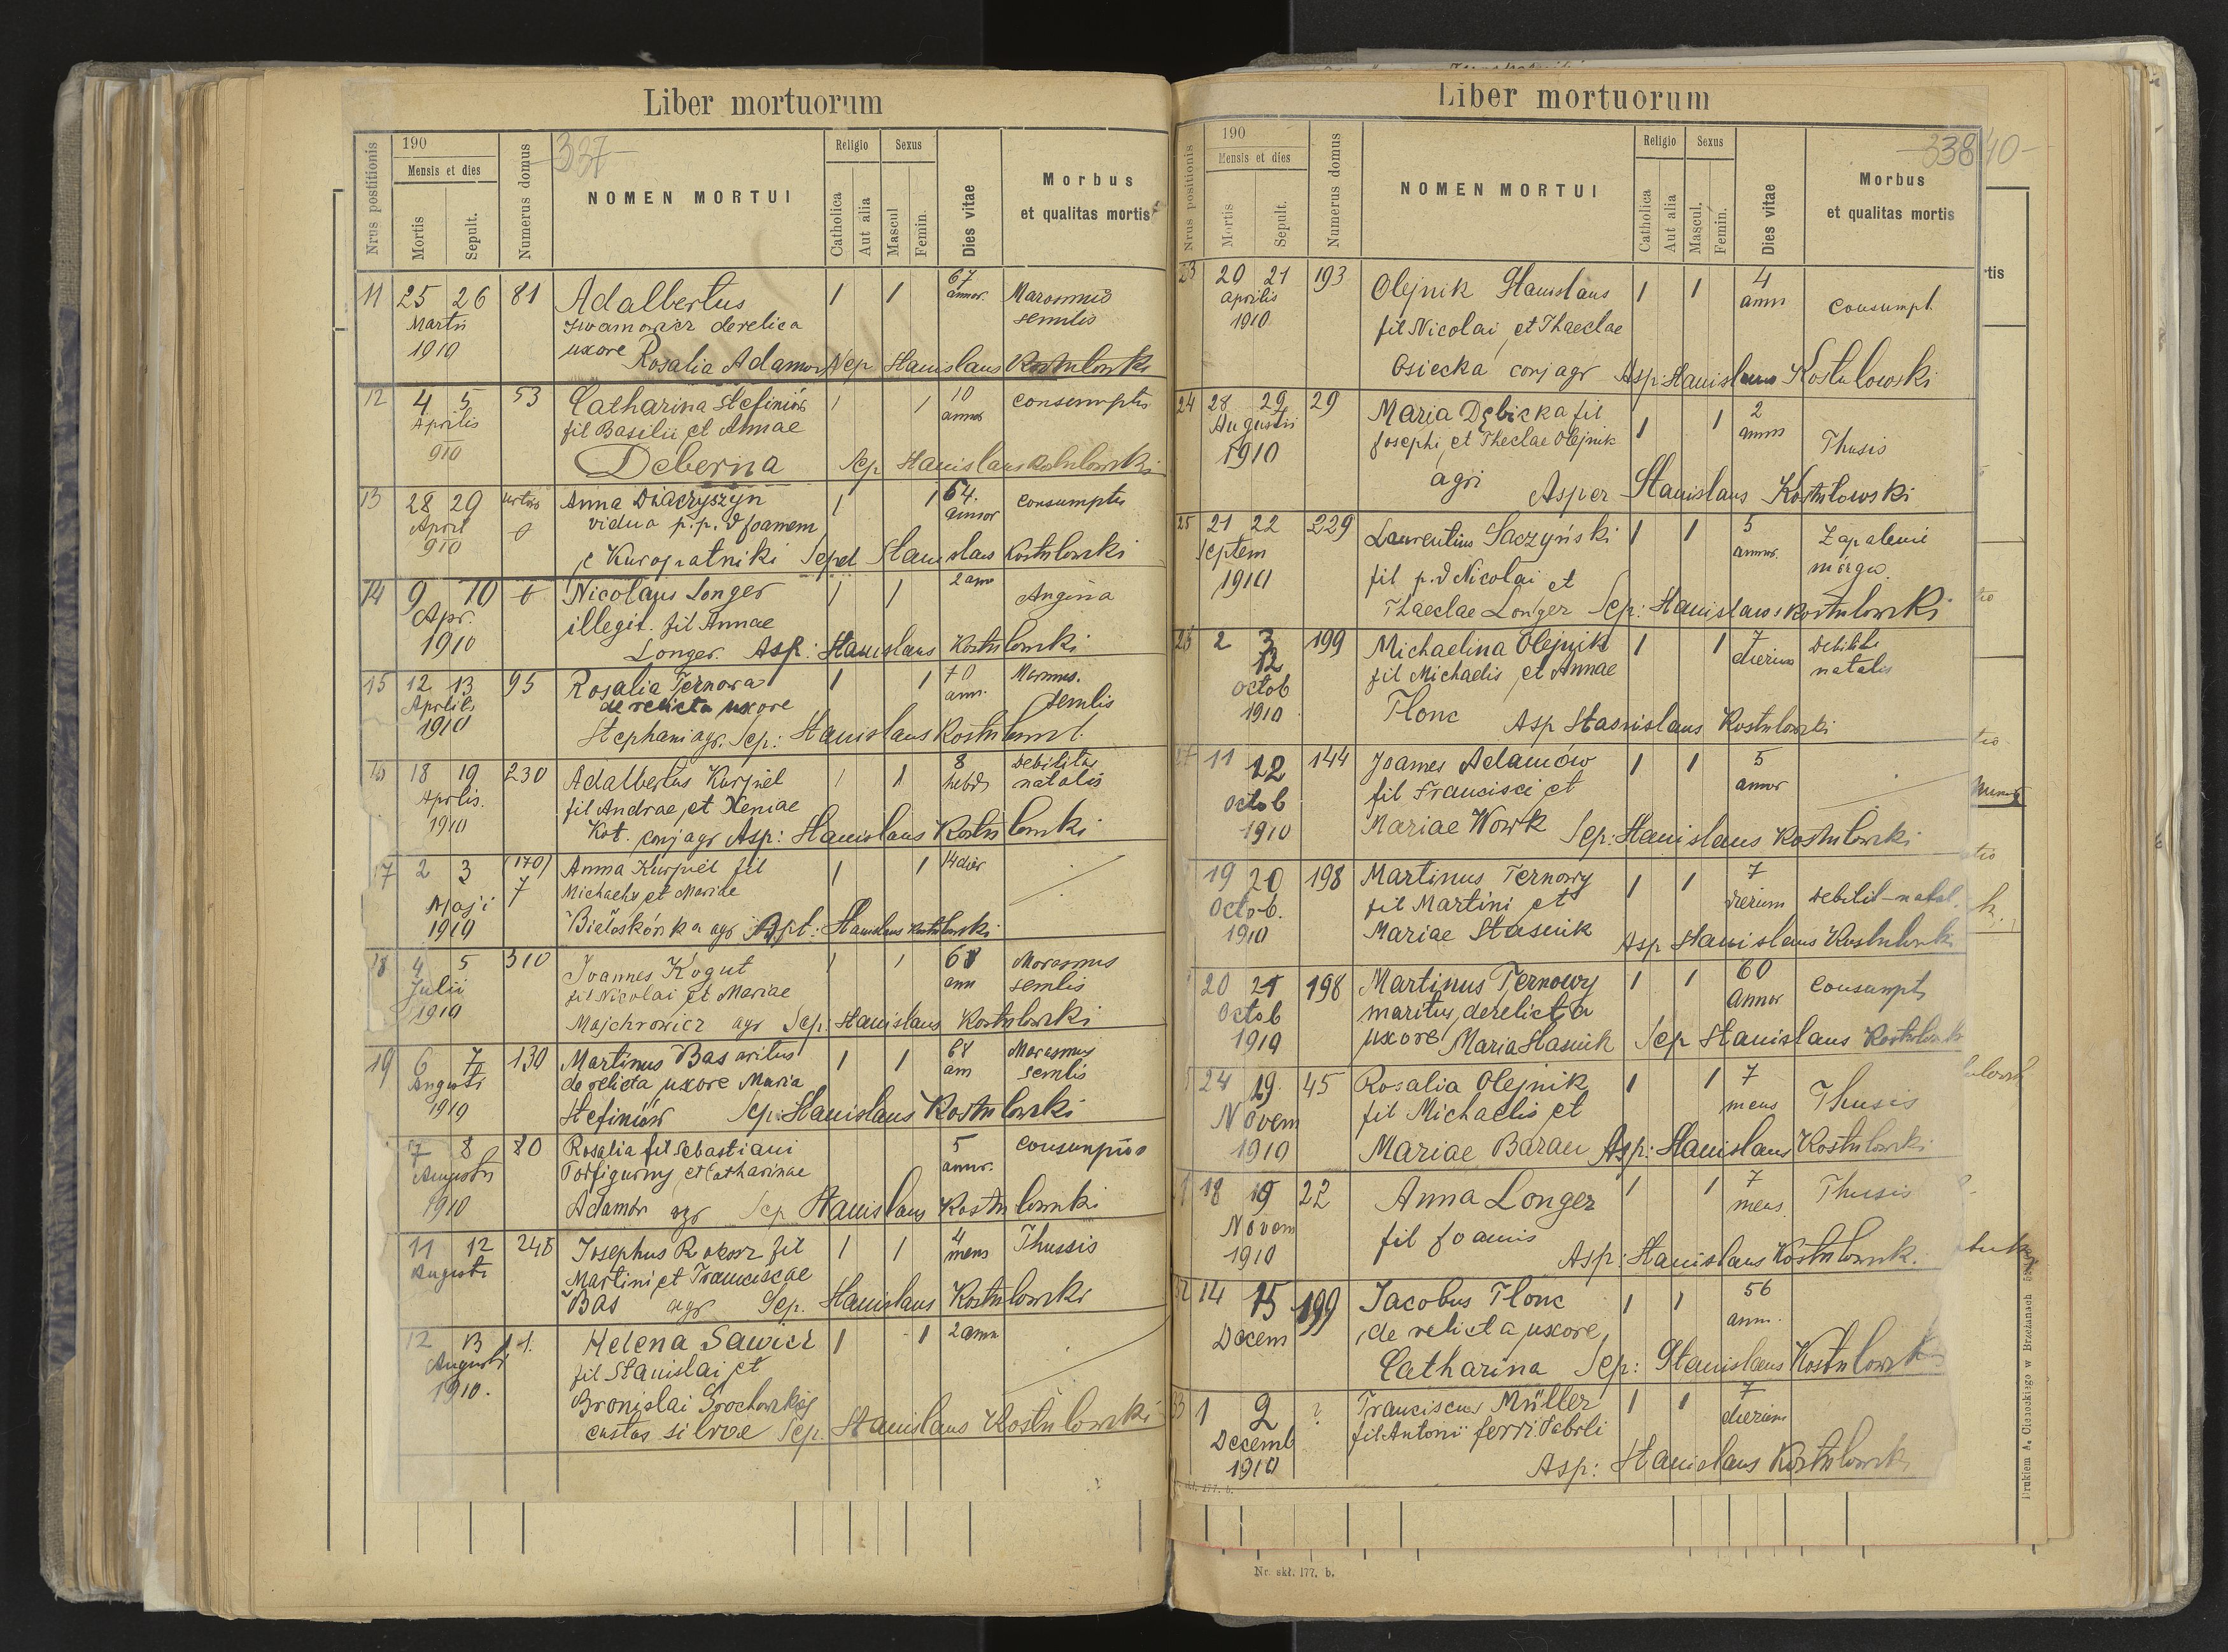 Liber mortuorum
337
Nrus postitionis
190
Mensis et dies
Mortis
Sepult.
Numerus domus
NOMEN MORTUI
Religio
Catholica
Aut alia
Sexus
Mascul
Femin.
Dies vitae
Morbus
et qualitas mortis
11 25 26 81 Adalbertus 1 1 67 annor.
Martii
1910
uxore Rosalia Adamow Sep Stanislaus Kostulowski
12 4 5 53 Catharina Stefiniów 1 1 10 annor consumptio
Aprilis fil Basilii et Annae
910 Deberna Sep Stanislaus Kostulowski
13 28 29 Anna Diaczyszyn 1 1 64. annor consumptio
April vidua p.p. d Joannem
910 e Kuropatniki Sepel Stanislaus Kostulowski
14 9 10 Nicolaus Longer 1 1 2 ann Angina
Apr. illegit. fil Annae
1910 Longer. Asp: Stanislaus Kostulowski
15 12 13 95 Rosalia Ternowa 1 1 70 ann. senilis
Aprilis derelicta uxore
1910 Stephani agr. Sep: Stanislaus
16 18 19 230 Adalbertus Kurpiel 1 1 8 hebd debilitas natalis
Aprlis. fil Andrae et Xeniae
1910 Kot. conj agr Asp: Stanislaus Kostulowski
17 2 3 (170) 7 Anna Kurpiel fil 1 1 14 dier
Maji Michaelis et Mariae
1910 agr Asp: Stanislaus Kostulowski
18 4 5 310 Joannes Kogut 1 1 68 ann Marasmus senilis
Julii fil Nicolai et Mariae
1910 Majchrowicz agr Sep: Stanislaus Kostulowski
19 6 7 130 Martinus Bas maritus 1 1 68 ann Marasmus senilis
Augusti derelicta uxore Maria
1910 Stefiniów Sep: Stanislaus Kostulowski
7 8 80 Rosalia fil Sebastiani 5 annor. consumptio
Augusti et Catharinae
1910 Adamów agr Sep Stanislaus Kostulowski
11 12 248 Josephus Rokosz fil 1 1 4 mens Thussis
Augusti Martini et Franciscae
Bas agr Sep. Stanislaus Kostulowski
12 13 Helena Sawicz 1 1 2 ann
Augusti fil Stanislai et
1910. Bronislai Grochowskiej
custos silvae Sep. Stanislaus Kostulowski
Liber mortuorum
338
40
Nrus positionis
190
Mensis et dies
Mortis
Sepult.
Numerus domus
NOMEN MORTUI
Religio
Catholica
Aut alia
Sexus
Mascul.
Femin.
Dies vitae
Morbus
et qualitas mortis
tis
23 20 21 193 Olejnik Stanislaus 1 1 4 ann consumpt.
Aprilis fil Nicolai et Thaeclae
1910 Osiecka conj agr Asp: Stanislaus Kostulowski
24 28 29 29 Maria Dębicka fil 1 1 2 ann Thusis
Augustii Josephi et Theclae Olejnik
1910 agri Asper Stanislaus Kostulowski
25 21 22 229 Laurentius Saczyński 1 1 5 annor. Zapalenie mózgu.
Septem fil p. d Nicolai et
1910 Thaeclae Longer Sep: Stanislaus Kostulowski
2 3 199 Michaelina Olejnik 1 1 7 dierum debilit natalis
12
Octob fil Michaelis et Annae
1910 Tlonc Asp Stanislaus Kostulowski
27 11 12 144 Joames Adamów 1 1 5 annor
Octob fil Francisci et
1910 Mariae Wowk Sep: Stanislaus Kostulowski
19 20 198 Martinus Ternowy 1 1 7 dierum debilit-natal.
Octob. fil Martini et
1910 Mariae Stasnik Asp Stanislaus Kostulowski
20 21 198 Martinus Ternowy 1 1 60 Annor consumpt
Octob maritus derelicta
1910 uxore Maria Stasnik Sep Stanislaus Kostulowski
24 19 45 Rosalia Olejnik 1 1 7 mens Thusis
Novem fil Michaelis et
1910 Mariae Baran Asp: Stanislaus Kostulowski
18 19 22 Anna Longer 1 1 7 mens. Thusis
Novem fil Joannis
1910 Asp: Stanislaus Kostulowsk.
32 14 15 199 Jacobus Tlonc 1 1 56 ann.
Decem derelicta uxore
Catharina Sep: Stanislaus Kostulowski
33 1 2 ? Franciscus Müller 1 1 7 dierum
Decemb fil Antonii ferri fabrli
1910 Asp: Stanislaus Kostulowski
Nr. skł. 177. b.
Drukiem A. Cienoskiego w Brzeżanach